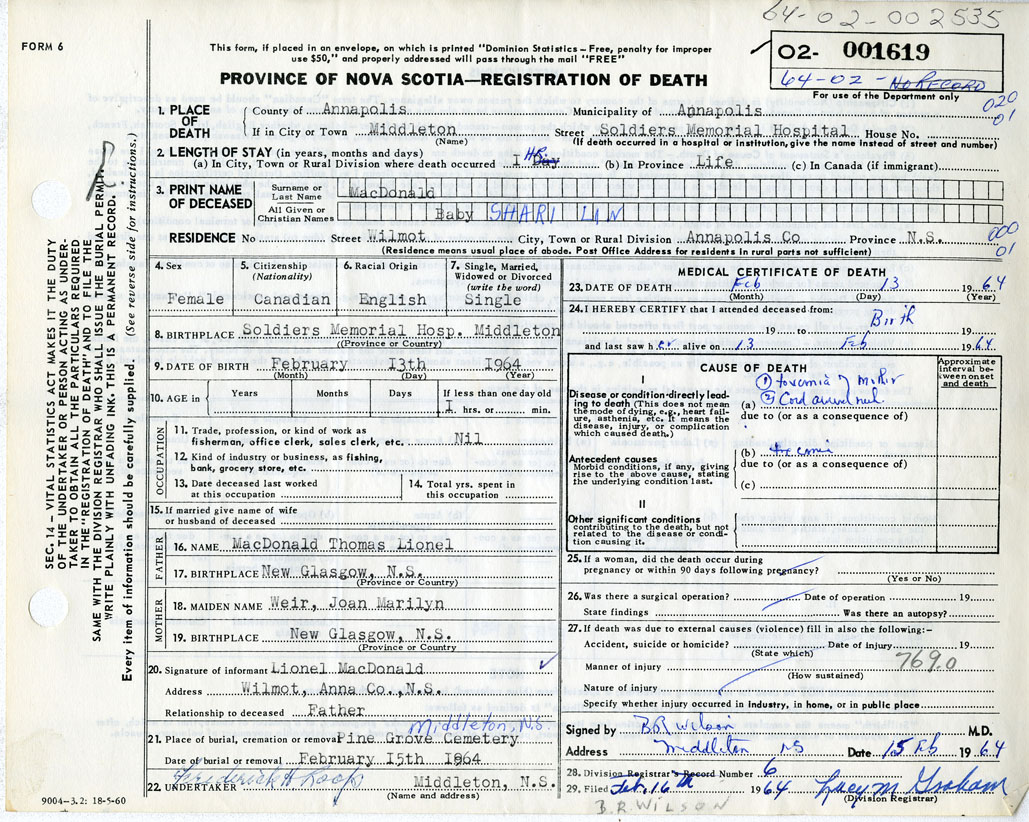 64-02-002535
FORM 6
This form, if placed in an envelope, on which is printed "Dominion Statistics – Free, penalty for improper
use $50," and properly addressed will pass through the mail "FREE"
02- 001619
64-02- NO RECORD
For use of the Department only
PROVINCE OF NOVA SCOTIA—REGISTRATION OF DEATH
020
01
1. PLACE OF DEATH
County of Annapolis Municipality of Annapolis
If in City or Town Middleton Street Soldiers Memorial Hospital House No.
(Name) (If death occurred in a hospital or institution, give the name instead of street and number)
2. LENGTH OF STAY (in years, months and days)
(a) In City, Town or Rural Division where death occurred 1 HR (b) In Province Life (c) In Canada (if immigrant)
3. PRINT NAME OF DECEASED
Surname or Last Name MacDonald
All Given or Christian Names Baby SHARI LIN
000
01
RESIDENCE No Street Wilmot City, Town or Rural Division Annapolis Co Province N.S.
(Residence means usual place of abode. Post Office Address for residents in rural parts not sufficient)
4. Sex
Female
5. Citizenship
(Nationality)
Canadian
6. Racial Origin
English
7. Single, Married,
Widowed or Divorced
(write the word)
Single
8. BIRTHPLACE Soldiers Memorial Hosp. Middleton
((Province or Country)
9. DATE OF BIRTH February 13th 1964
(Month) (Day) (Year)
10. AGE in
Years Months Days If less than one day old
1 hrs. or min.
OCCUPATION
11. Trade, profession, or kind of work as
fisherman, office clerk, sales clerk, etc. Nil
12. Kind of industry or business, as fishing,
bank, grocery store, etc.
13. Date deceased last worked
at this occupation
14. Total yrs. spent in
this occupation
15. If married give name of wife
or husband of deceased
FATHER
16. NAME MacDonald Thomas Lionel
17. BIRTHPLACE New Glasgow, N.S.
(Province or Country)
MOTHER
18. MAIDEN NAME Weir, Joan Marilyn
19. BIRTHPLACE New Glasgow, N.S.
(Province or Country
20. Signature of informant Lionel MacDonald
Address Wilmot, Anna Co., N.S.
Relationship to deceased Father
Middleton, N.S.
21. Place of burial, cremation or removal Pine Grove Cemetery
Date of burial or removal February 15th 1964
22. UNDERTAKER Frederick H Roop Middleton, N.S.
(Name and address)
9004—3.2: 18-5-60
MEDICAL CERTIFICATE OF DEATH
23. DATE OF DEATH Feb 13 1964
(Month) (Day) (Year)
24. I HEREBY CERTIFY that I attended deceased from:
Birth
19 to 19
and last saw her alive on 13 Feb 1964
CAUSE OF DEATH
Approximate
interval be-
tween onset
and death
I
Disease or condition directly lead-
ing to death (This does not mean
the mode of dying, e.g., heart fail-
ure, asthenia, etc. It means the
disease, injury, or complication
which caused death.)
(1) toxemia of mother
(a) (2) Cord around neck
due to (or as a consequence of)
Antecedent causes
Morbid conditions, if any, giving
rise to the above cause, stating
the underlying condition last.
(b)
due to (or as a consequence of)
(c)
II
Other significant conditions
contributing to the death, but not
related to the disease or condi-
tion causing it.
25. If a woman, did the death occur during
pregnancy or within 90 days following pregnancy?
(Yes or No)
26. Was there a surgical operation? Date of operation 19
State findings Was there an autopsy?
27. If death was due to external causes (violence) fill in also the following:–
Accident, suicide or homicide? Date of injury 19
(State which)
769.0
Manner of injury
(How sustained)
Nature of injury
Specify whether injury occurred in industry, in home, or in public place
Signed by B.R. Wilson M.D.
Address Middleton NS Date 15 Feb 1964
28. Division Registrar's Record Number 6
29. Filed Feb. 16th 1964 Lucy M Graham
(Division Registrar)
B.R. WILSON
SEC. 14 – VITAL STATISTICS ACT MAKES IT THE DUTY
OF THE UNDERTAKER OR PERSON ACTING AS UNDER-
TAKER TO OBTAIN ALL THE PARTICULARS REQUIRED
IN THE "REGISTRATION OF DEATH" AND TO FILE THE
SAME WITH THE DIVISION REGISTRAR WHO SHALL ISSUE THE BURIAL PERMIT.
WRITE PLAINLY WITH UNFADING INK. THIS IS A PERMANENT RECORD.
Every item of information should be carefully supplied. (See reverse side for instructions.)